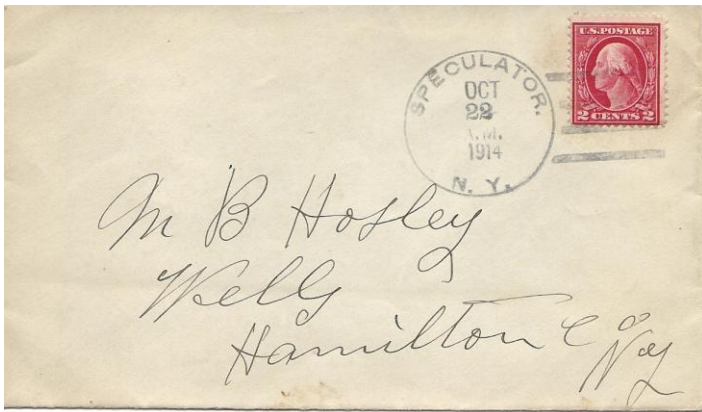 U.S. POSTAGE
2 CENTS 2
SPECULATOR.
OCT
22
A.M.
1914
N. Y.
M B Hosley
Wells
Hamilton Co
N Y